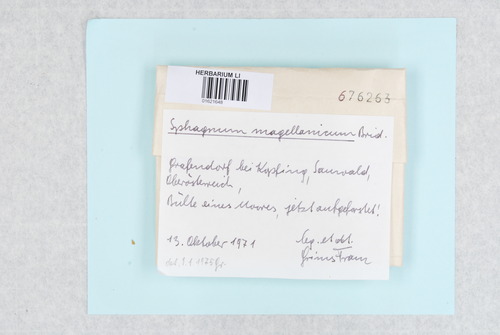 HERBARIUM LI
01621049
676263
Sphagnum magellanicum Brid.
Grafendorf bei Kopfing, Sauwald,
Oberösterreich,
Bülte eines Moores, jetzt aufgeforstet!
13. Oktober 1971
leg. et det.